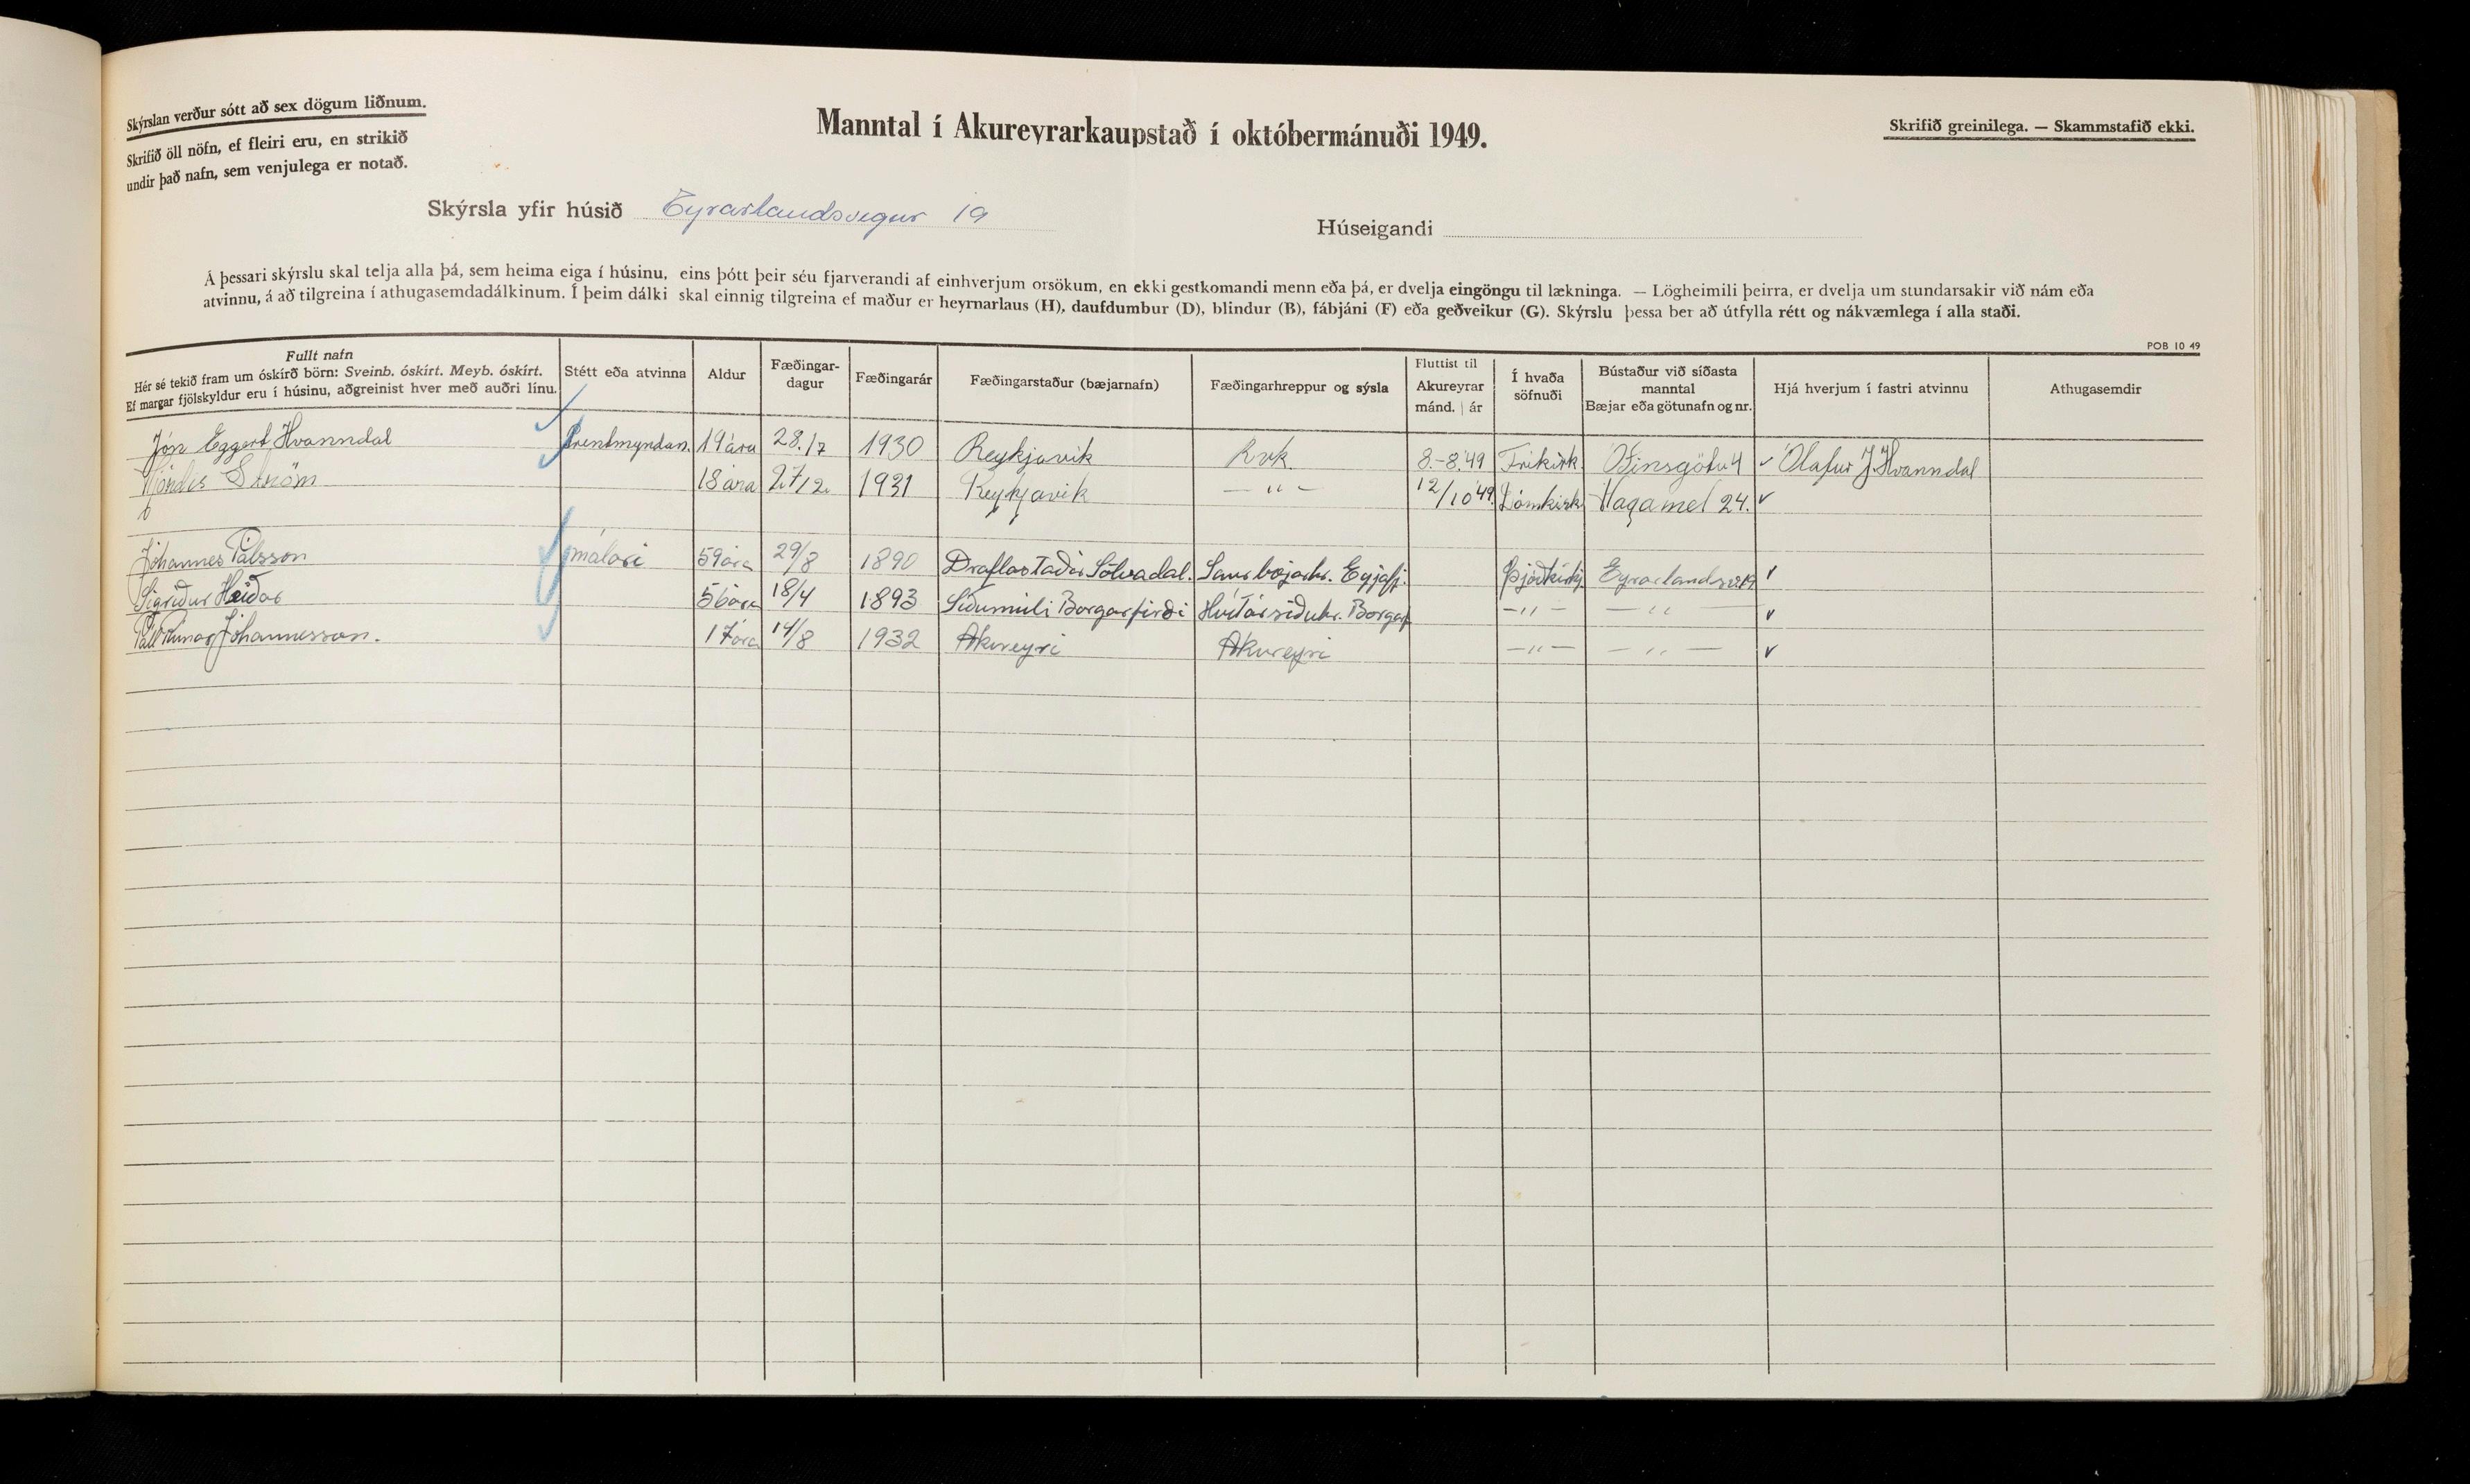 Skýrslan verður sótt að sex dögum liðnum.
Skrifið öll nöfn, ef fleiri eru, en strikið
undir það nafn, sem venjulega er notað.
Manntal í Akureyrarkaupstað í októbermánuði 1949.
Skrifið greinilega. — Skammstafið ekki.
Skýrsla yfir húsið Eyrarlandsvegur 19
Húseigandi
Á þessari skýrslu skal telja alla þá, sem heima eiga í húsinu, eins þótt þeir séu fjarverandi af einhverjum orsökum, en ekki gestkomandi menn eða þá, er dvelja eingöngu til lækninga. — Lögheimili þeirra, er dvelja um stundarsakir við nám eða
atvinnu, á að tilgreina í athugasemdadálkinum. Í þeim dálki skal einnig tilgreina ef maður er heyrnarlaus (H), daufdumbur (D), blindur (B), fábjáni (F) eða geðveikur (G). Skýrslu þessa ber að útfylla rétt og nákvæmlega í alla staði.
POB 10 49
Fullt nafn
Hér sé tekið fram um óskírð börn: Sveinb. óskírt. Meyb. óskírt.
Ef margar fjölskyldur eru í húsinu, aðgreinist hver með auðri línu.
Stétt eða atvinna
Aldur
Fæðingar-
dagur
Fæðingarár
Fæðingarstaður (bæjarnafn)
Fæðingarhreppur og sýsla
Fluttist til
Akureyrar
mánd. | ár
Í hvaða
söfnuði
Bústaður við síðasta
manntal
Bæjar eða götunafn og nr.
Hjá hverjum í fastri atvinnu
Athugasemdir
Jón Eggert Hvanndal Prentmyndan. 19 ára 28./7 1930 Reykjavík Rvk. 8.-8.'49 Fríkirk. Óðinsgötu 4 ✓ Ólafur J. Hvanndal
Hjördís Ström 18 ára 27/12. 1931 Reykjavik — " — 12/10 '49. Dómkirk Hagamel 24. ✓
Jóhannes Pálsson málari 59 ára 29/8 1890 Draflastaðir Sölvadal. Saurbæjarhr. Eyjafj. Þjóðkirkj. Eyrarlandsv. 19 ✓
Sigríður Heiðar 56 ára 18/4 1893 Síðumúli Borgarfirði Hvítársíðuhr. Borgarf — " — — " — ✓
Páll Rúnar Jóhannesson. 17 ára 14/8 1932 Akureyri Akureyri — " — — " — ✓